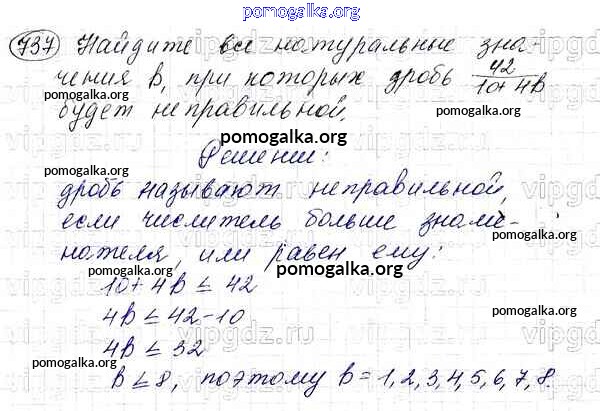 pomogalka.org
737 Найдите все натуральные зна-
чения в, при которых дробь 42/10+4в
будет неправильной.
pomogalka.org
Решение:
pomogalka.org
дробь называют неправильной,
если числитель больше знаме-
нателя, или равен ему:
pomogalka.org pomogalka.org
10+4в ≤ 42
4в ≤ 42-10
4в ≤ 32
pomogalka.org
в ≤ 8, поэтому в = 1, 2, 3, 4, 5, 6, 7, 8.
pomogalka.org